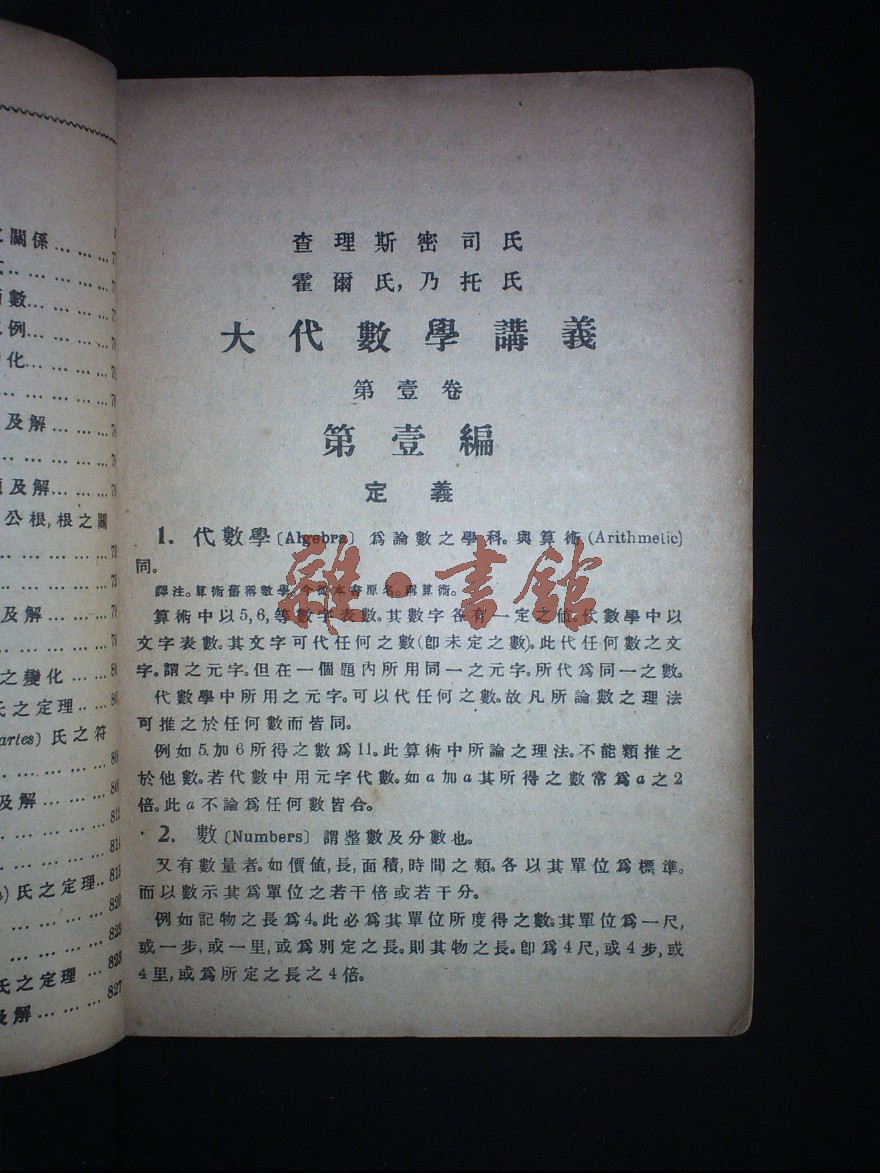 關係... ...
數... ...
例... ...
化... ...
及解... ...
及解... ...
公根,根之關
及解... ...
之變化... ...
氏之定理..
氏之符
及解... ...
813
814
氏之定理.. 818
820
823
氏之定理... 826
及解... ... 827
查理斯密司氏
霍爾氏,乃托氏
大代數學講義
第壹卷
第壹編
定義
1. 代數學〔Algebra〕爲論數之學科。與算術(Arithmetic)
同。
譯注。算術舊稱數學。今從本書原名。稱算術。
算術中以5,6,等數字表數。其數字各有一定之値。代數學中以
文字表數。其文字可代任何之數(卽未定之數)。此代任何數之文
字。謂之元字。但在一個題內所用同一之元字。所代爲同一之數。
代數學中所用之元字。可以代任何之數。故凡所論數之理法
可推之於任何數而皆同。
例如5.加6所得之數爲11。此算術中所論之理法。不能類推之
於他數。若代數中用元字代數。如a加a其所得之數常爲a之2
倍。此a不論爲任何數皆合。
2. 數〔Numbers〕謂整數及分數也。
又有數量者。如價値,長,面積,時間之類。各以其單位爲標準。
而以數示其爲單位之若干倍或若干分。
例如記物之長爲4。此必爲其單位所度得之數。其單位爲一尺,
或一步,或一里,或爲別定之長。則其物之長。卽爲4尺,或4步,或
4里,或爲所定之長之4倍。
雜·書館